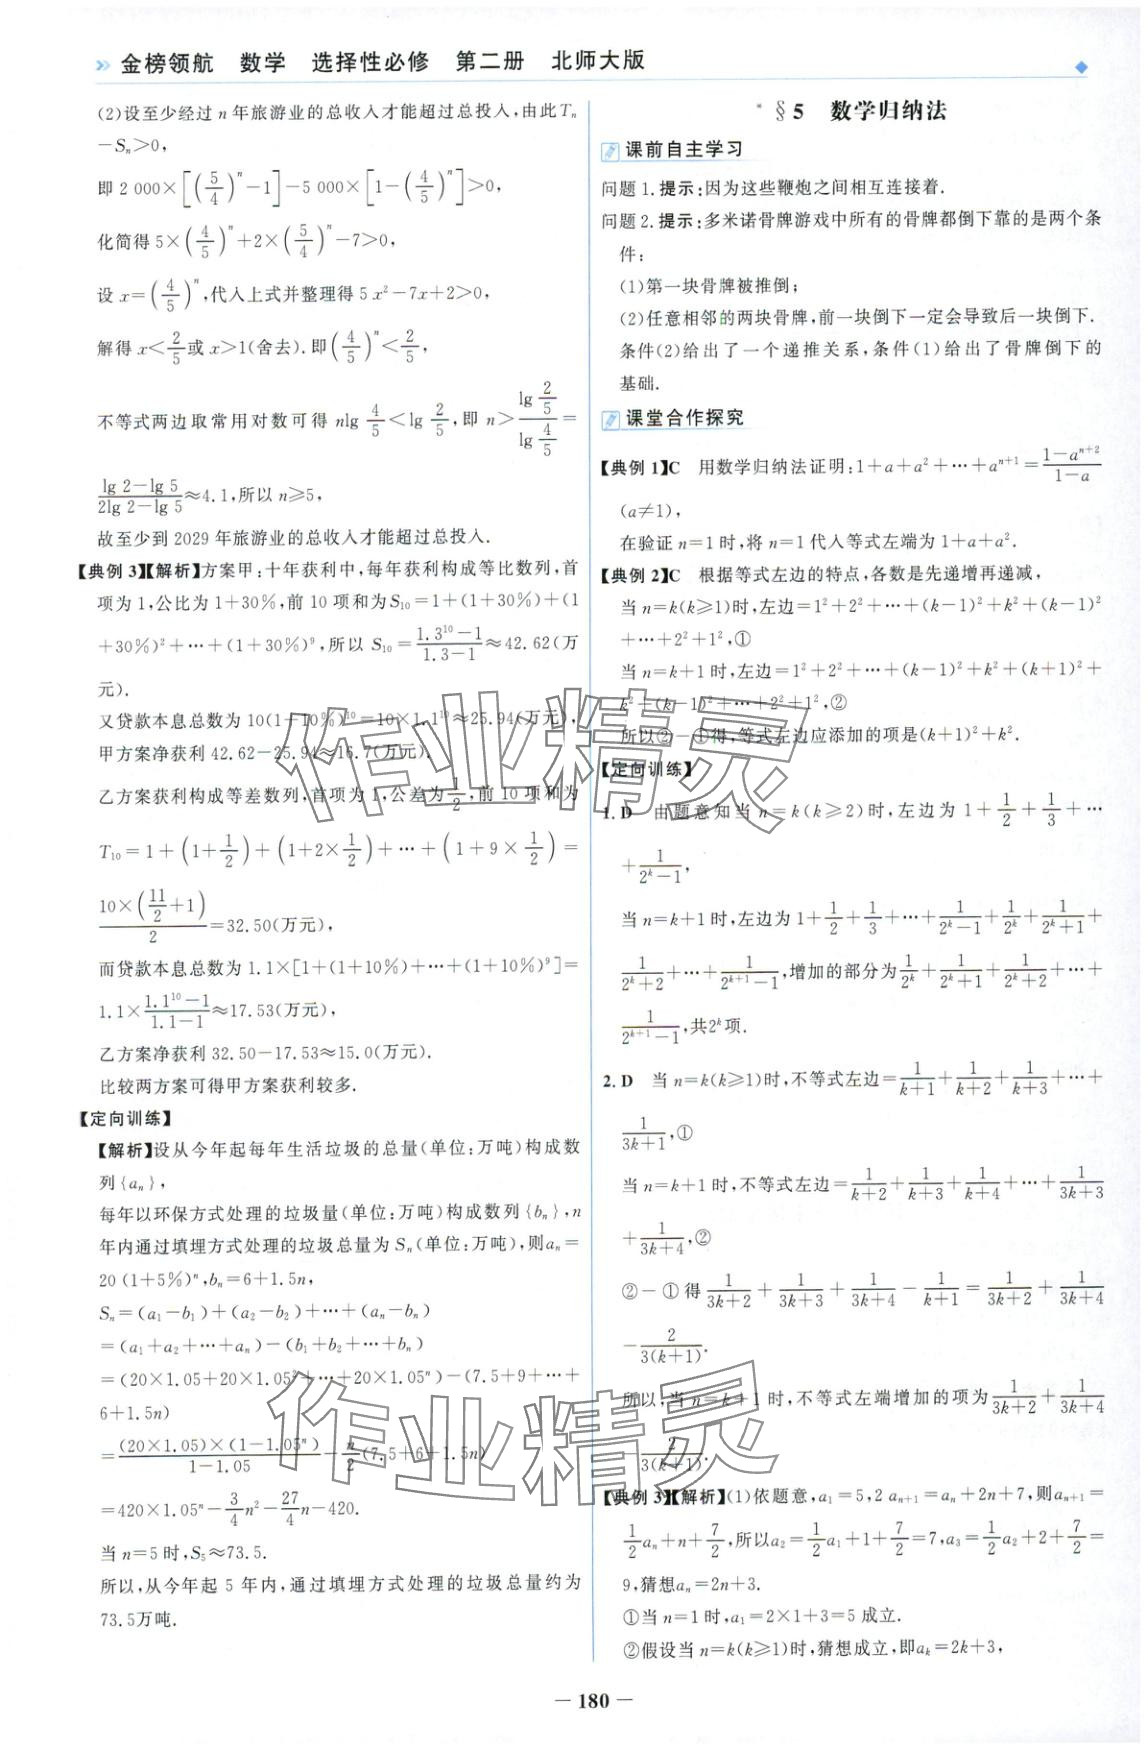 金榜领航 数学 选择性必修 第二册 北师大版
(2)设至少经过 n 年旅游业的总收入才能超过总投入,由此Tₙ
−Sₙ>0,
即 2 000×[(5/4)ⁿ−1]−5 000×[1−(4/5)ⁿ]>0,
化简得 5×(4/5)ⁿ+2×(5/4)ⁿ−7>0,
设 x=(4/5)ⁿ,代入上式并整理得 5x²−7x+2>0,
解得 x<2/5或 x>1(舍去).即(4/5)ⁿ<2/5,
不等式两边取常用对数可得 nlg 4/5<lg 2/5,即 n>(lg 2/5)/(lg 4/5)=
(lg 2−lg 5)/(2lg 2−lg 5)≈4.1,所以 n≥5,
故至少到 2029 年旅游业的总收入才能超过总投入.
【典例 3】【解析】方案甲:十年获利中,每年获利构成等比数列,首
项为 1,公比为 1+30%,前 10 项和为 S₁₀=1+(1+30%)+(1
+30%)²+⋯+(1+30%)⁹,所以 S₁₀=(1.3¹⁰−1)/(1.3−1)≈42.62(万
元).
又贷款本息总数为 10(1+10%)¹⁰=10×1.1¹⁰≈25.94(万元),
甲方案净获利 42.62−25.94≈16.7(万元),
乙方案获利构成等差数列,首项为 1,公差为1/2,前 10 项和为
T₁₀=1+(1+1/2)+(1+2×1/2)+⋯+(1+9×1/2)=
10×(11/2+1)/2=32.50(万元),
而贷款本息总数为 1.1×[1+(1+10%)+⋯+(1+10%)⁹]=
1.1×(1.1¹⁰−1)/(1.1−1)≈17.53(万元),
乙方案净获利 32.50−17.53≈15.0(万元).
比较两方案可得甲方案获利较多.
【定向训练】
【解析】设从今年起每年生活垃圾的总量(单位:万吨)构成数
列{aₙ},
每年以环保方式处理的垃圾量(单位:万吨)构成数列{bₙ},n
年内通过填埋方式处理的垃圾总量为 Sₙ(单位:万吨),则aₙ=
20(1+5%)ⁿ,bₙ=6+1.5n,
Sₙ=(a₁−b₁)+(a₂−b₂)+⋯+(aₙ−bₙ)
=(a₁+a₂+⋯+aₙ)−(b₁+b₂+⋯+bₙ)
=(20×1.05+20×1.05²+⋯+20×1.05ⁿ)−(7.5+9+⋯+
6+1.5n)
=(20×1.05)×(1−1.05ⁿ)/(1−1.05)−n/2(7.5+6+1.5n)
=420×1.05ⁿ−3/4n²−27/4n−420.
当 n=5 时,S₅≈73.5.
所以,从今年起 5 年内,通过填埋方式处理的垃圾总量约为
73.5万吨.
*§5 数学归纳法
课前自主学习
问题 1.提示:因为这些鞭炮之间相互连接着.
问题 2.提示:多米诺骨牌游戏中所有的骨牌都倒下靠的是两个条
件:
(1)第一块骨牌被推倒;
(2)任意相邻的两块骨牌,前一块倒下一定会导致后一块倒下.
条件(2)给出了一个递推关系,条件(1)给出了骨牌倒下的
基础.
课堂合作探究
【典例 1】C 用数学归纳法证明:1+a+a²+⋯+aⁿ⁺¹=(1−aⁿ⁺²)/(1−a)
(a≠1),
在验证 n=1 时,将 n=1 代入等式左端为 1+a+a².
【典例 2】C 根据等式左边的特点,各数是先递增再递减,
当 n=k(k≥1)时,左边=1²+2²+⋯+(k−1)²+k²+(k−1)²
+⋯+2²+1²,①
当 n=k+1 时,左边=1²+2²+⋯+(k−1)²+k²+(k+1)²+
k²+(k−1)²+⋯+2²+1²,②
所以②−①得,等式左边应添加的项是(k+1)²+k².
【定向训练】
1. D 由题意知当 n=k(k≥2)时,左边为 1+1/2+1/3+⋯
+1/(2ᵏ−1),
当 n=k+1 时,左边为 1+1/2+1/3+⋯+1/(2ᵏ−1)+1/2ᵏ+1/(2ᵏ+1)+
1/(2ᵏ+2)+⋯+1/(2ᵏ⁺¹−1),增加的部分为1/2ᵏ+1/(2ᵏ+1)+1/(2ᵏ+2)+⋯+
1/(2ᵏ⁺¹−1),共2ᵏ项.
2. D 当 n=k(k≥1)时,不等式左边=1/(k+1)+1/(k+2)+1/(k+3)+⋯+
1/(3k+1),①
当 n=k+1 时,不等式左边=1/(k+2)+1/(k+3)+1/(k+4)+⋯+1/(3k+3)
+1/(3k+4),②
②−①得 1/(3k+2)+1/(3k+3)+1/(3k+4)−1/(k+1)=1/(3k+2)+1/(3k+4)
−2/(3(k+1)).
所以,当 n=k+1 时,不等式左端增加的项为1/(3k+2)+1/(3k+4)
−2/(3(k+1)).
【典例 3】【解析】(1)依题意,a₁=5,2aₙ₊₁=aₙ+2n+7,则aₙ₊₁=
1/2aₙ+n+7/2,所以a₂=1/2a₁+1+7/2=7,a₃=1/2a₂+2+7/2=
9,猜想aₙ=2n+3.
①当 n=1 时,a₁=2×1+3=5 成立.
②假设当 n=k(k≥1)时,猜想成立,即aₖ=2k+3,
— 180 —
作业精灵
作业精灵